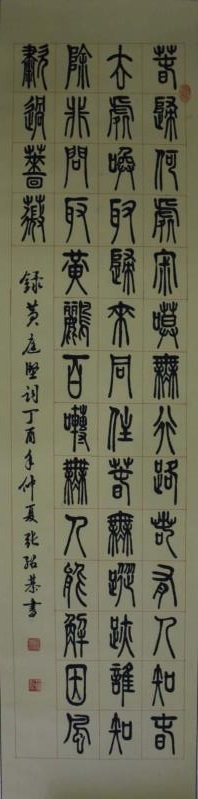 春歸何處寂嗼無行路若有人知春
去處喚取歸來同住春無蹤跡誰知
除非問取黃鸝百囀無人能解因風
過薔薇
録黄庭堅詞丁酉年仲夏張書